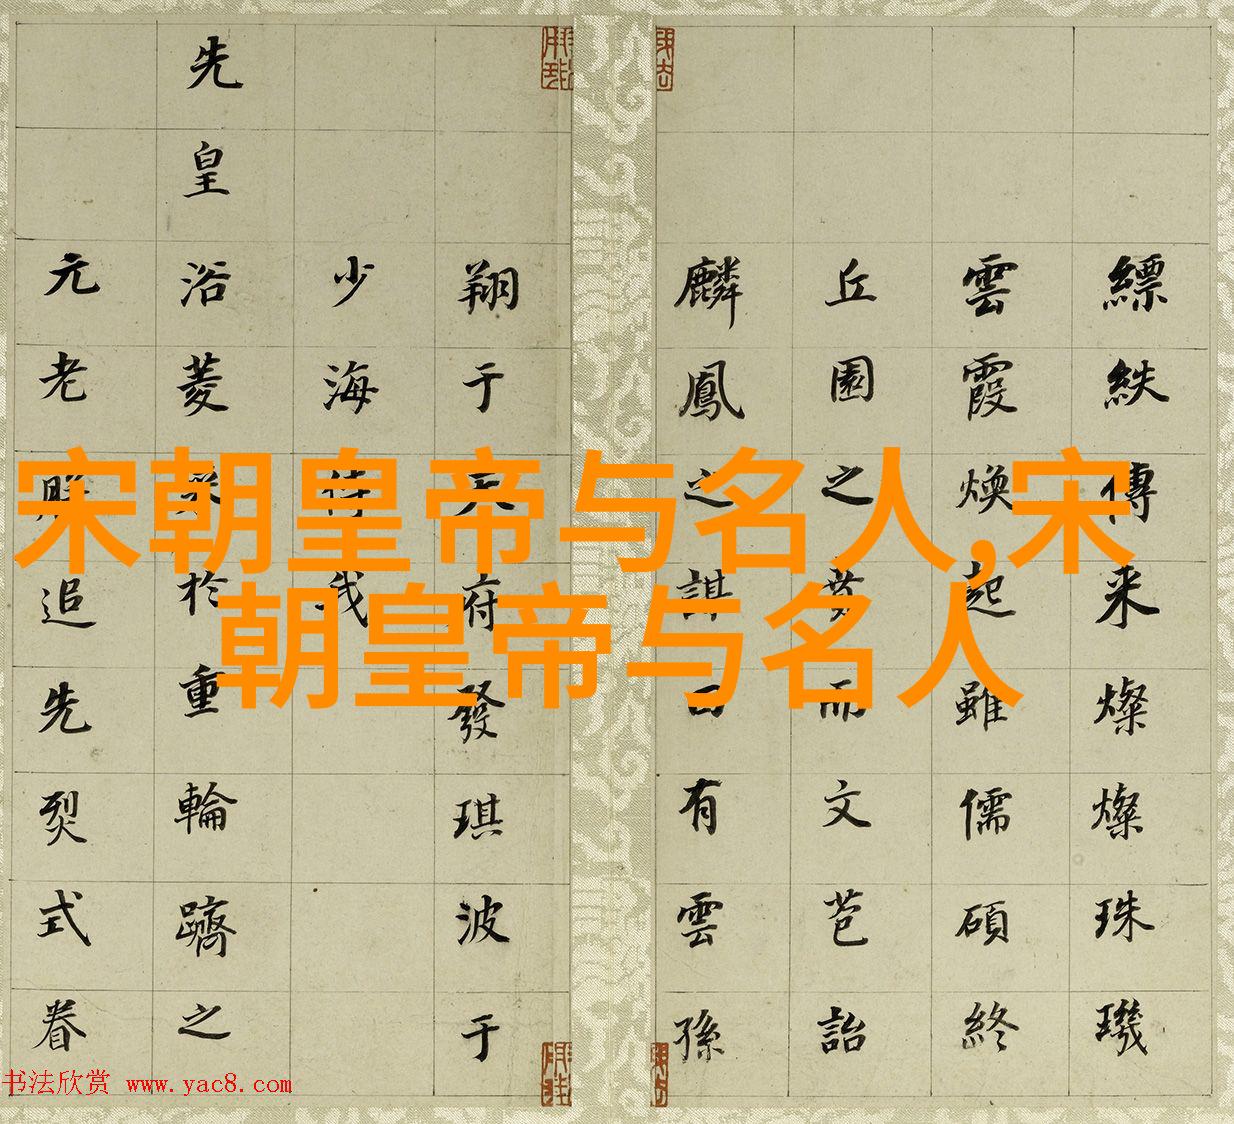 宋朝皇帝与名人,宋
朝皇帝与名人
縹紩傳来燦燦珠璣
雲霞煥起雖儒碩終
丘園之而文苞詒
麟鳳之有雲孫
翔于天府發琪波于
少海待我
先皇浴菱於重輪躋之
元老追先烈式眷
书法欣赏 www.yac8.com